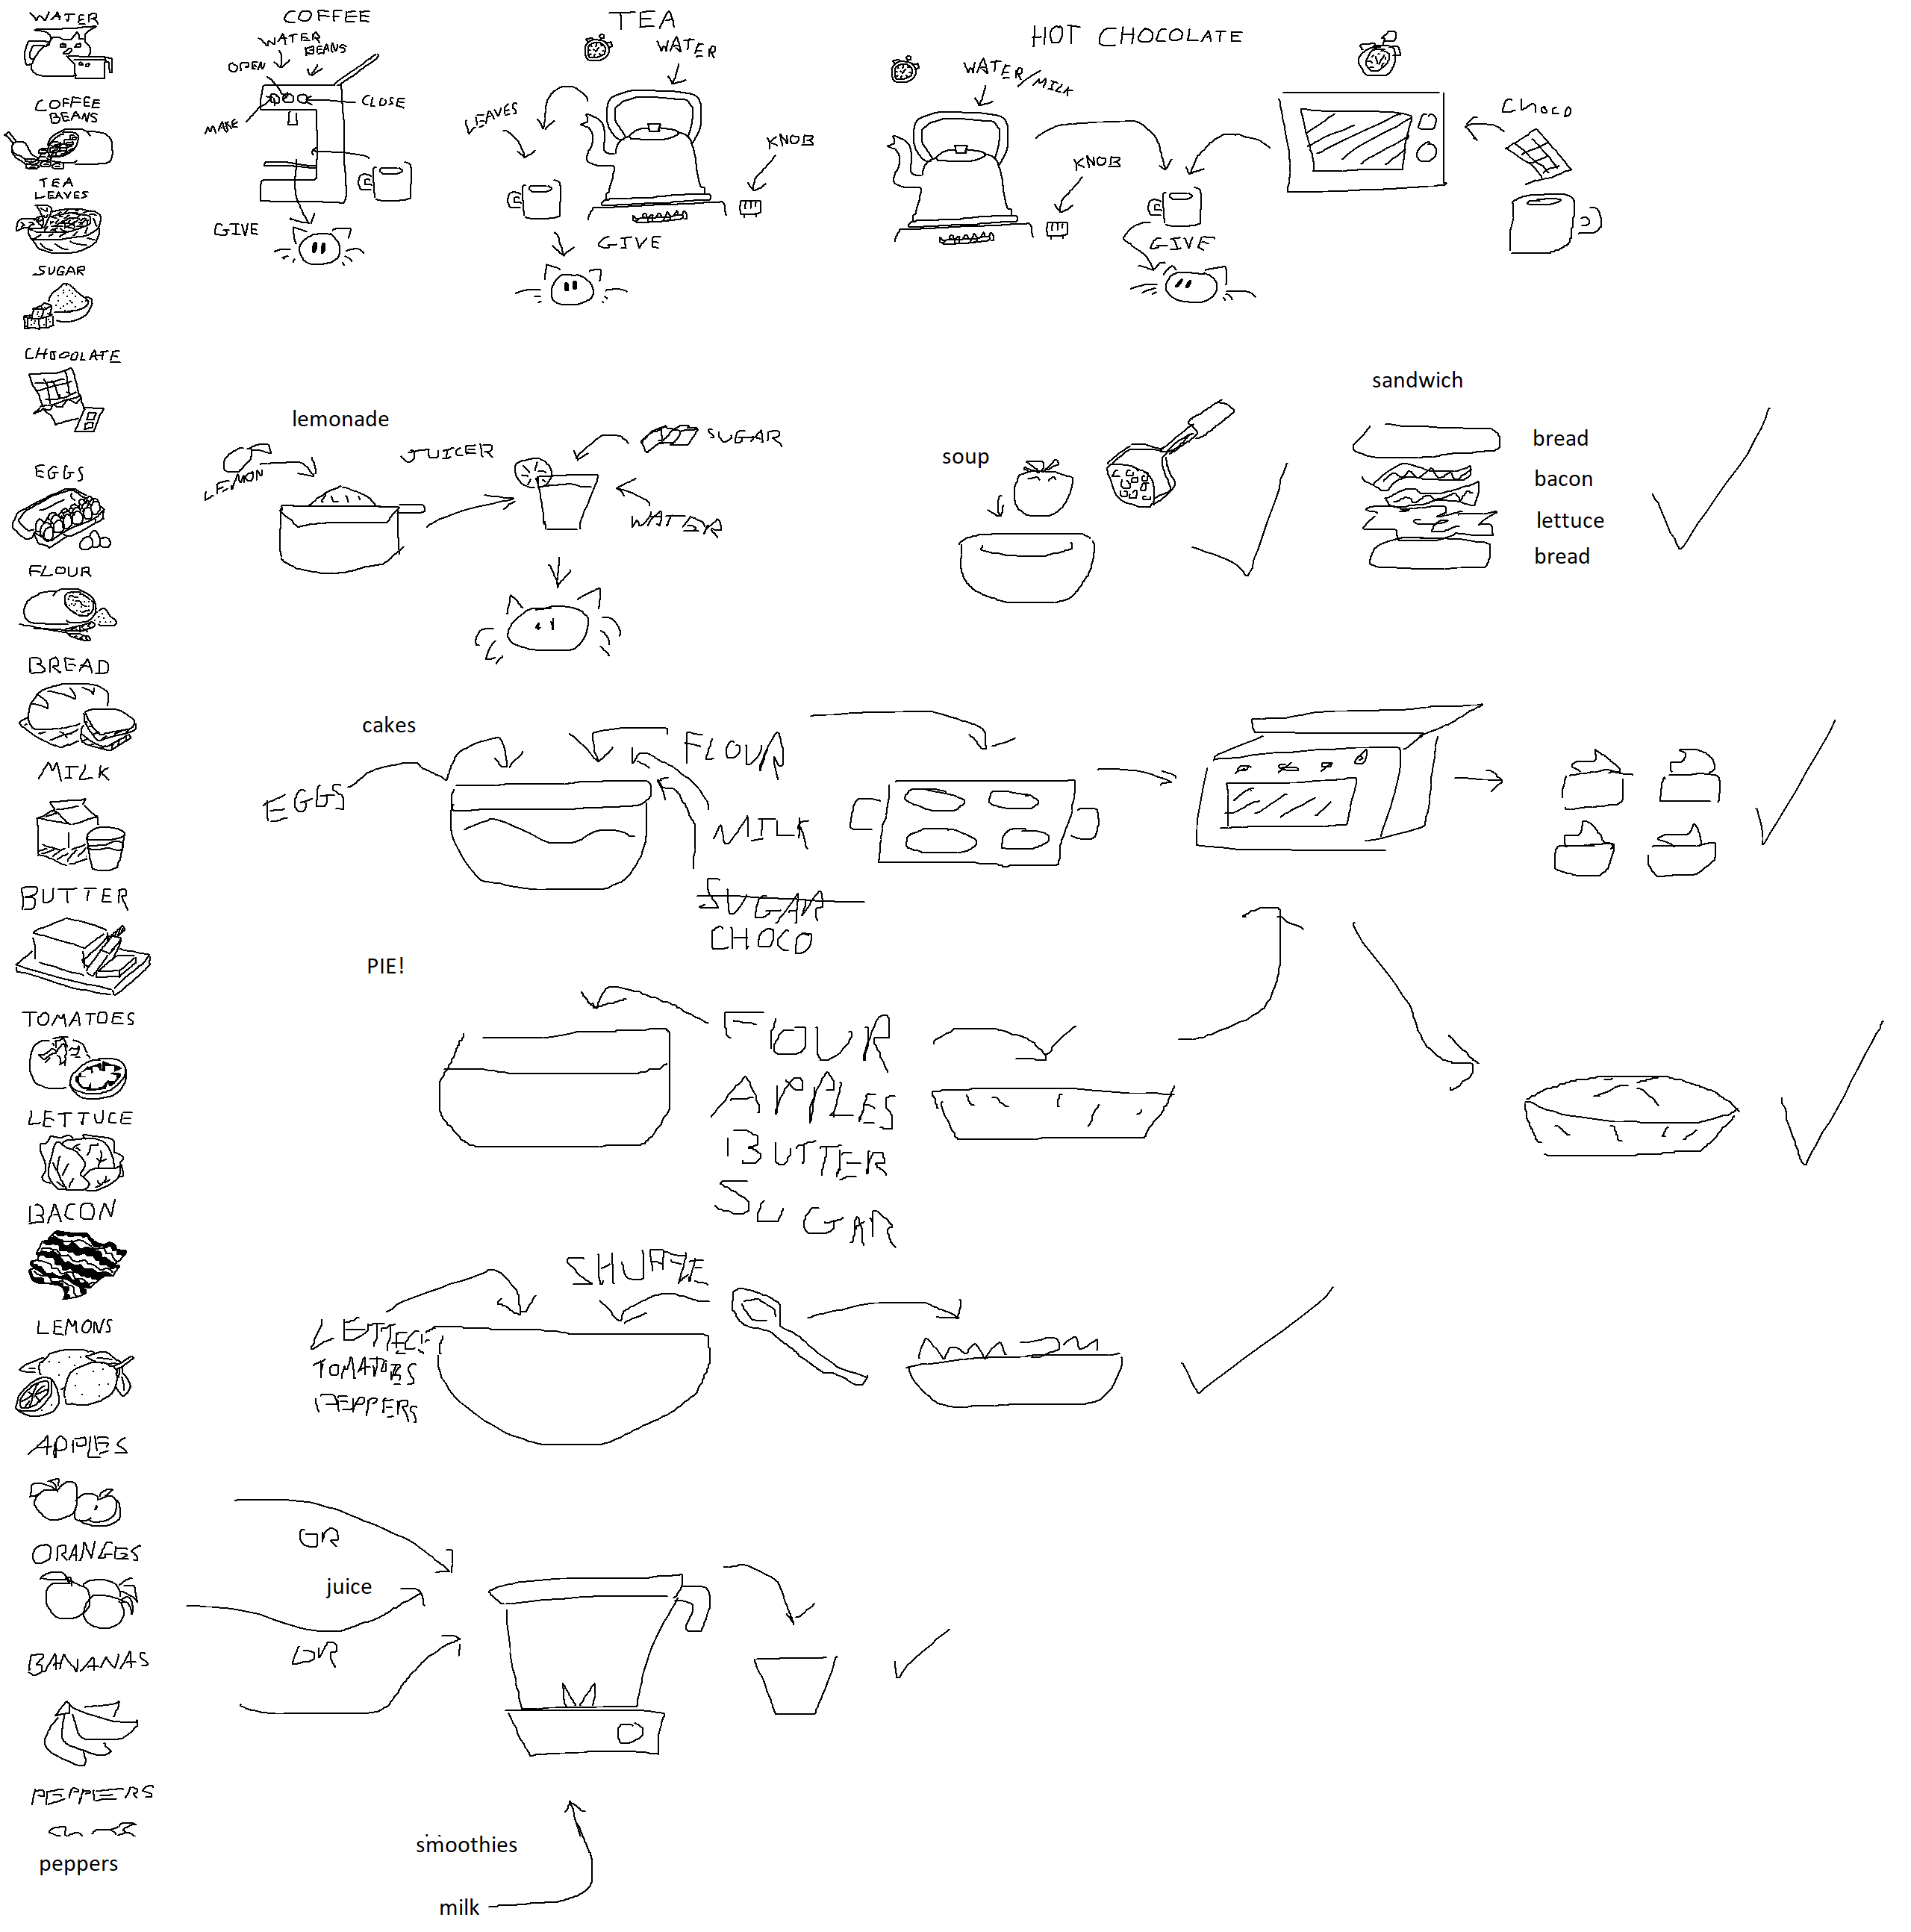 WATER
COFFEE
BEANS
TEA
LEAVES
SUGAR
CHOCOLATE
EGGS
FLOUR
BREAD
MILK
BUTTER
TOMATOES
LETTUCE
BACON
LEMONS
APPLES
ORANGES
BANANAS
PEPPERS
peppers
COFFEE
WATER
BEANS
OPEN
CLOSE
MAKE
GIVE
TEA
WATER
LEAVES
KNOB
GIVE
HOT CHOCOLATE
WATER/MILK
KNOB
CHOCO
GIVE
lemonade
LEMON
JUICER
SUGAR
WATER
soup
sandwich
bread
bacon
lettuce
bread
cakes
EGGS
FLOUR
MILK
SUGAR
CHOCO
PIE!
FLOUR
APPLES
BUTTER
SUGAR
SHUFFLE
LETTECE
TOMATOES
PEPPERS
OR
juice
OR
smoothies
milk